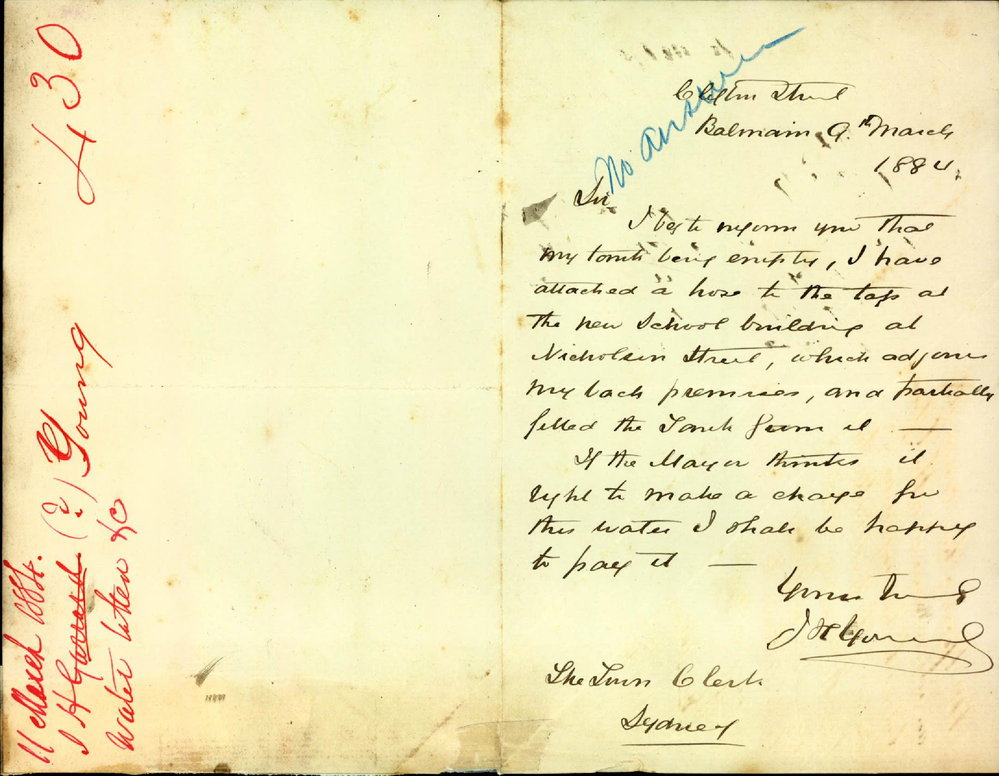 430
11 March 1884.
J H Garrard (?) Young
Water taken &c
No answer
Clayton Street
Balmain 9th March
1884.
Sir
I beg to inform you that
my tank being empty, I have
attached a hose to the tap at
the new School building at
Nicholson Street, which adjoins
my back premises, and partially
filled the Tank from it —
If the Mayor thinks it
right to make a charge for
this water I shall be happy
to pay it —
Yours truly
J H Young
The Town Clerk
Sydney